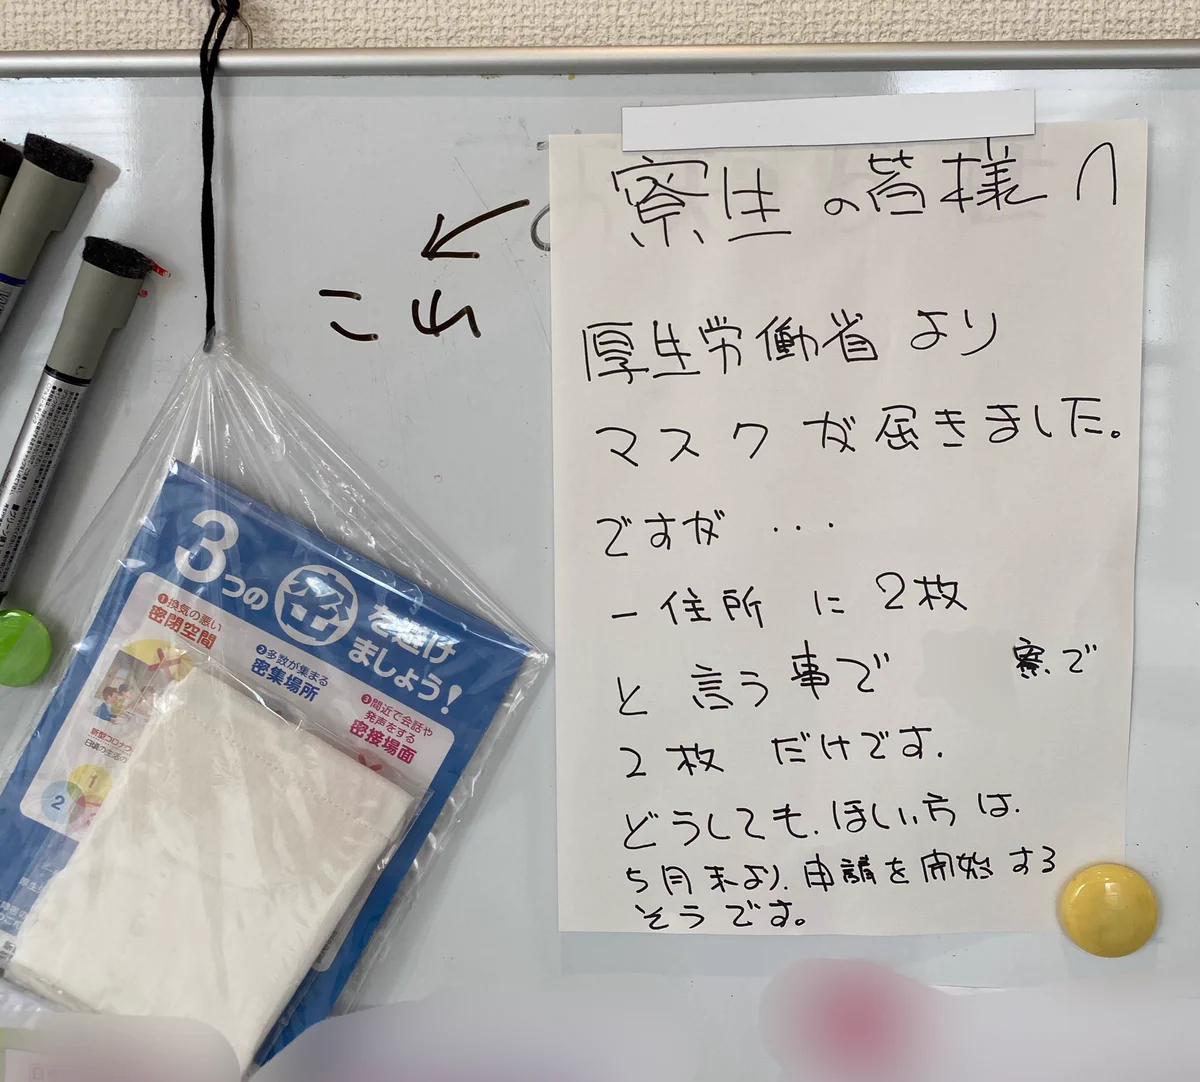 寮生の皆様へ
厚生労働省より
マスクが届きました。
ですが・・・
一住所に2枚
と言う事で 寮で
2枚だけです.
どうしても.ほしい方は.
5月末より.申請を開始する
そうです。
これ
3つの密を避け
ましょう!
❶換気の悪い
密閉空間
❷多数が集まる
密集場所
❸間近で会話や
発声をする
密接場面
新型コロナウ
日頃の生活の
1
2